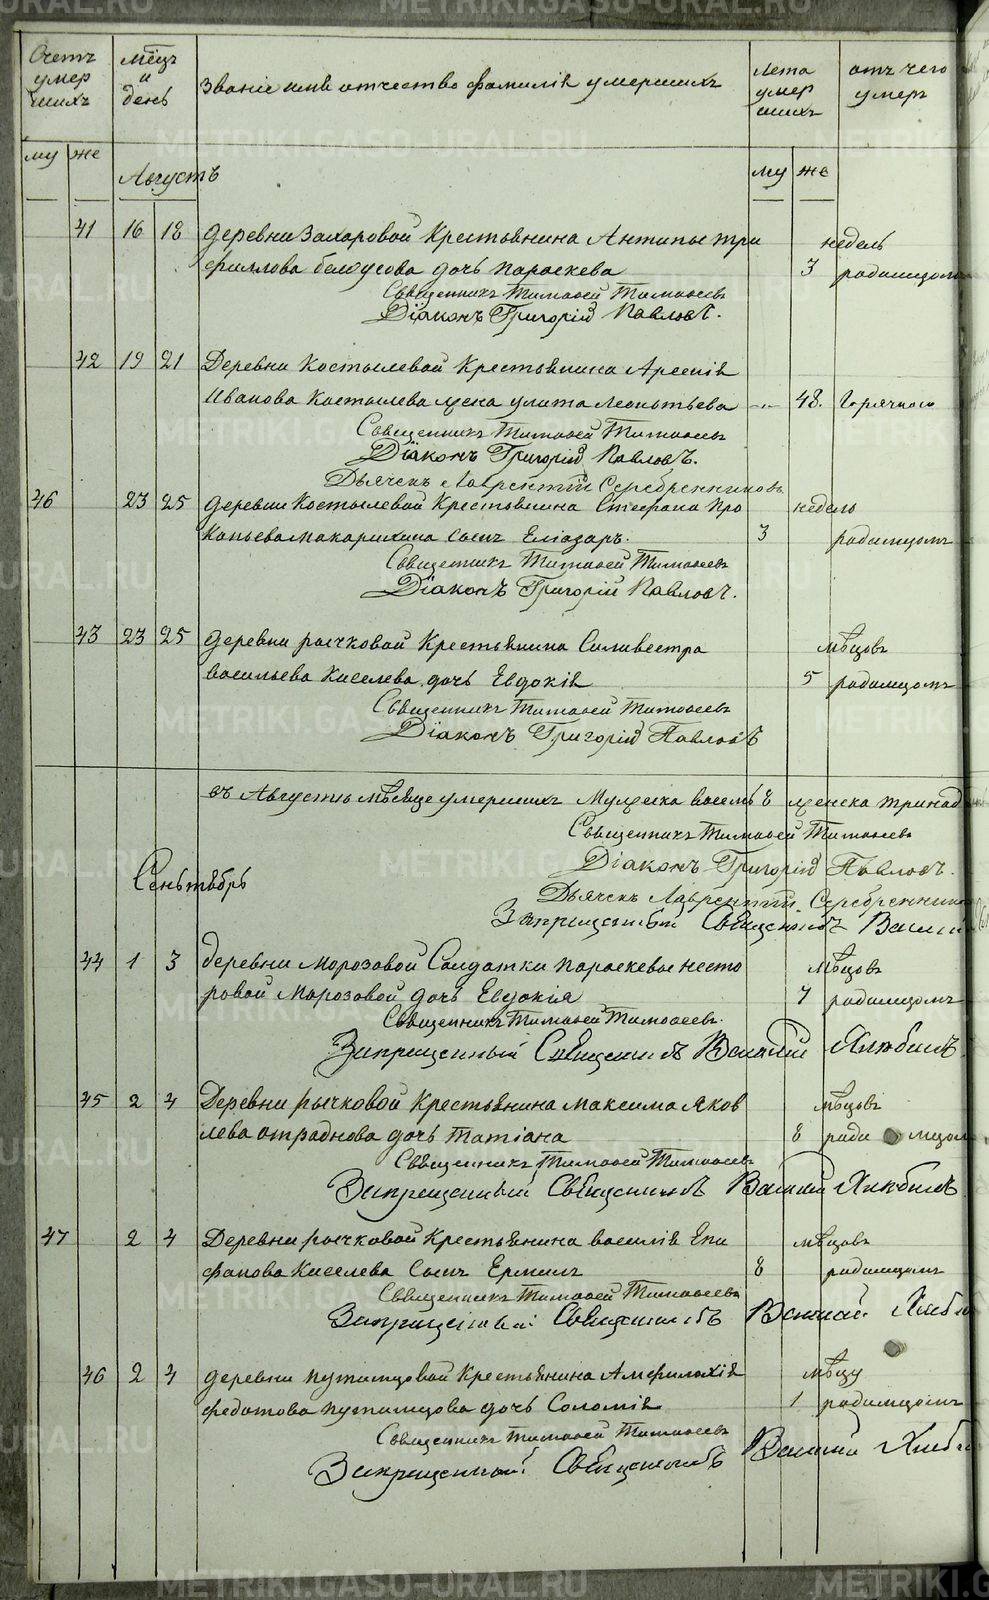 Счетъ умер шихъ
Мѣцъ и день
Званіе имя отчество фамилія умершихъ
Лета умер шихъ
отъ чего умеръ
му же
Августъ
му же
41 16 18 деревни Захаровой Крестьянина Антипы три недель
филлова белоусова дочь Параскева 3 родимцомъ
Священникъ Тимофей Тимофеевъ
Діаконъ Григорій Павловъ.
42 19 21 Деревни Костылевой Крестьянина Арсенія
Иванова Костылева жена улита Леонтьева 48. Горячкою
Священникъ Тимофей Тимофеевъ
Діаконъ Григорій Павловъ.
Дьячекъ Лаврентій Серебренниковъ
46 23 25 деревни Костылевой Крестьянина Стефана Про недель
Копьева Макарихина сынъ Еліазаръ. 3 родимцомъ
Священникъ Тимофей Тимофеевъ
Діаконъ Григорій Павловъ.
43 23 25 деревни рычковой Крестьянина Силивестра мѣцовъ
васильева Киселева дочь Евдокія 5 родимцомъ
Священникъ Тимофей Тимофеевъ
Діаконъ Григорій Павловъ
въ Августѣ мѣсяце умершихъ Мужеска восемь 8 женска тринад
Священникъ Тимофей Тимофеевъ
Діаконъ Григорій Павловъ.
Сеньтябрь
Дьячекъ Лаврентій Серебренник
Запрещенный Священникъ Васили
44 1 3 деревни Морозовой Салдатки Параскевы несто мѣцовъ
ровой Морозовой дочь Евдокія 7 родимцомъ
Священникъ Тимофей Тимофеевъ.
Запрещенный Священникъ Василій
45 2 4 Деревни рычковой Крестьянина Максима Яков мѣцовъ
лева отраднова дочь Татіана 8 роди мцом
Священникъ Тимофей Тимофеевъ
Запрещенный Священникъ Василій
47 2 4 Деревни рычковой Крестьянина василія Епи мѣцовъ
фанова Киселева Сынъ Ермилъ 8 родимцомъ
Священникъ Тимофей Тимофеевъ
Запрещенный Священникъ Василій
46 2 4 деревни путимцовой Крестьянина Амфилохія мѣцу
федотова путимцова дочь Соломія 1 родимцомъ
Священникъ Тимофей Тимофеевъ
Запрещенный Священникъ Василій
METRIKI.GASO-URAL.RU